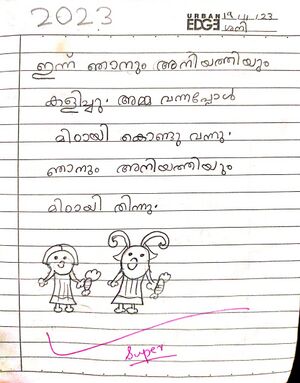 2023
URBAN EDGE
19/11/23
ശനി
ഇന്ന് ഞാനും അനിയത്തിയും
കളിച്ചു. അമ്മ വന്നപ്പോൾ
മിഠായി കൊണ്ടു വന്നു.
ഞാനും അനിയത്തിയും
മിഠായി തിന്നു.
Super